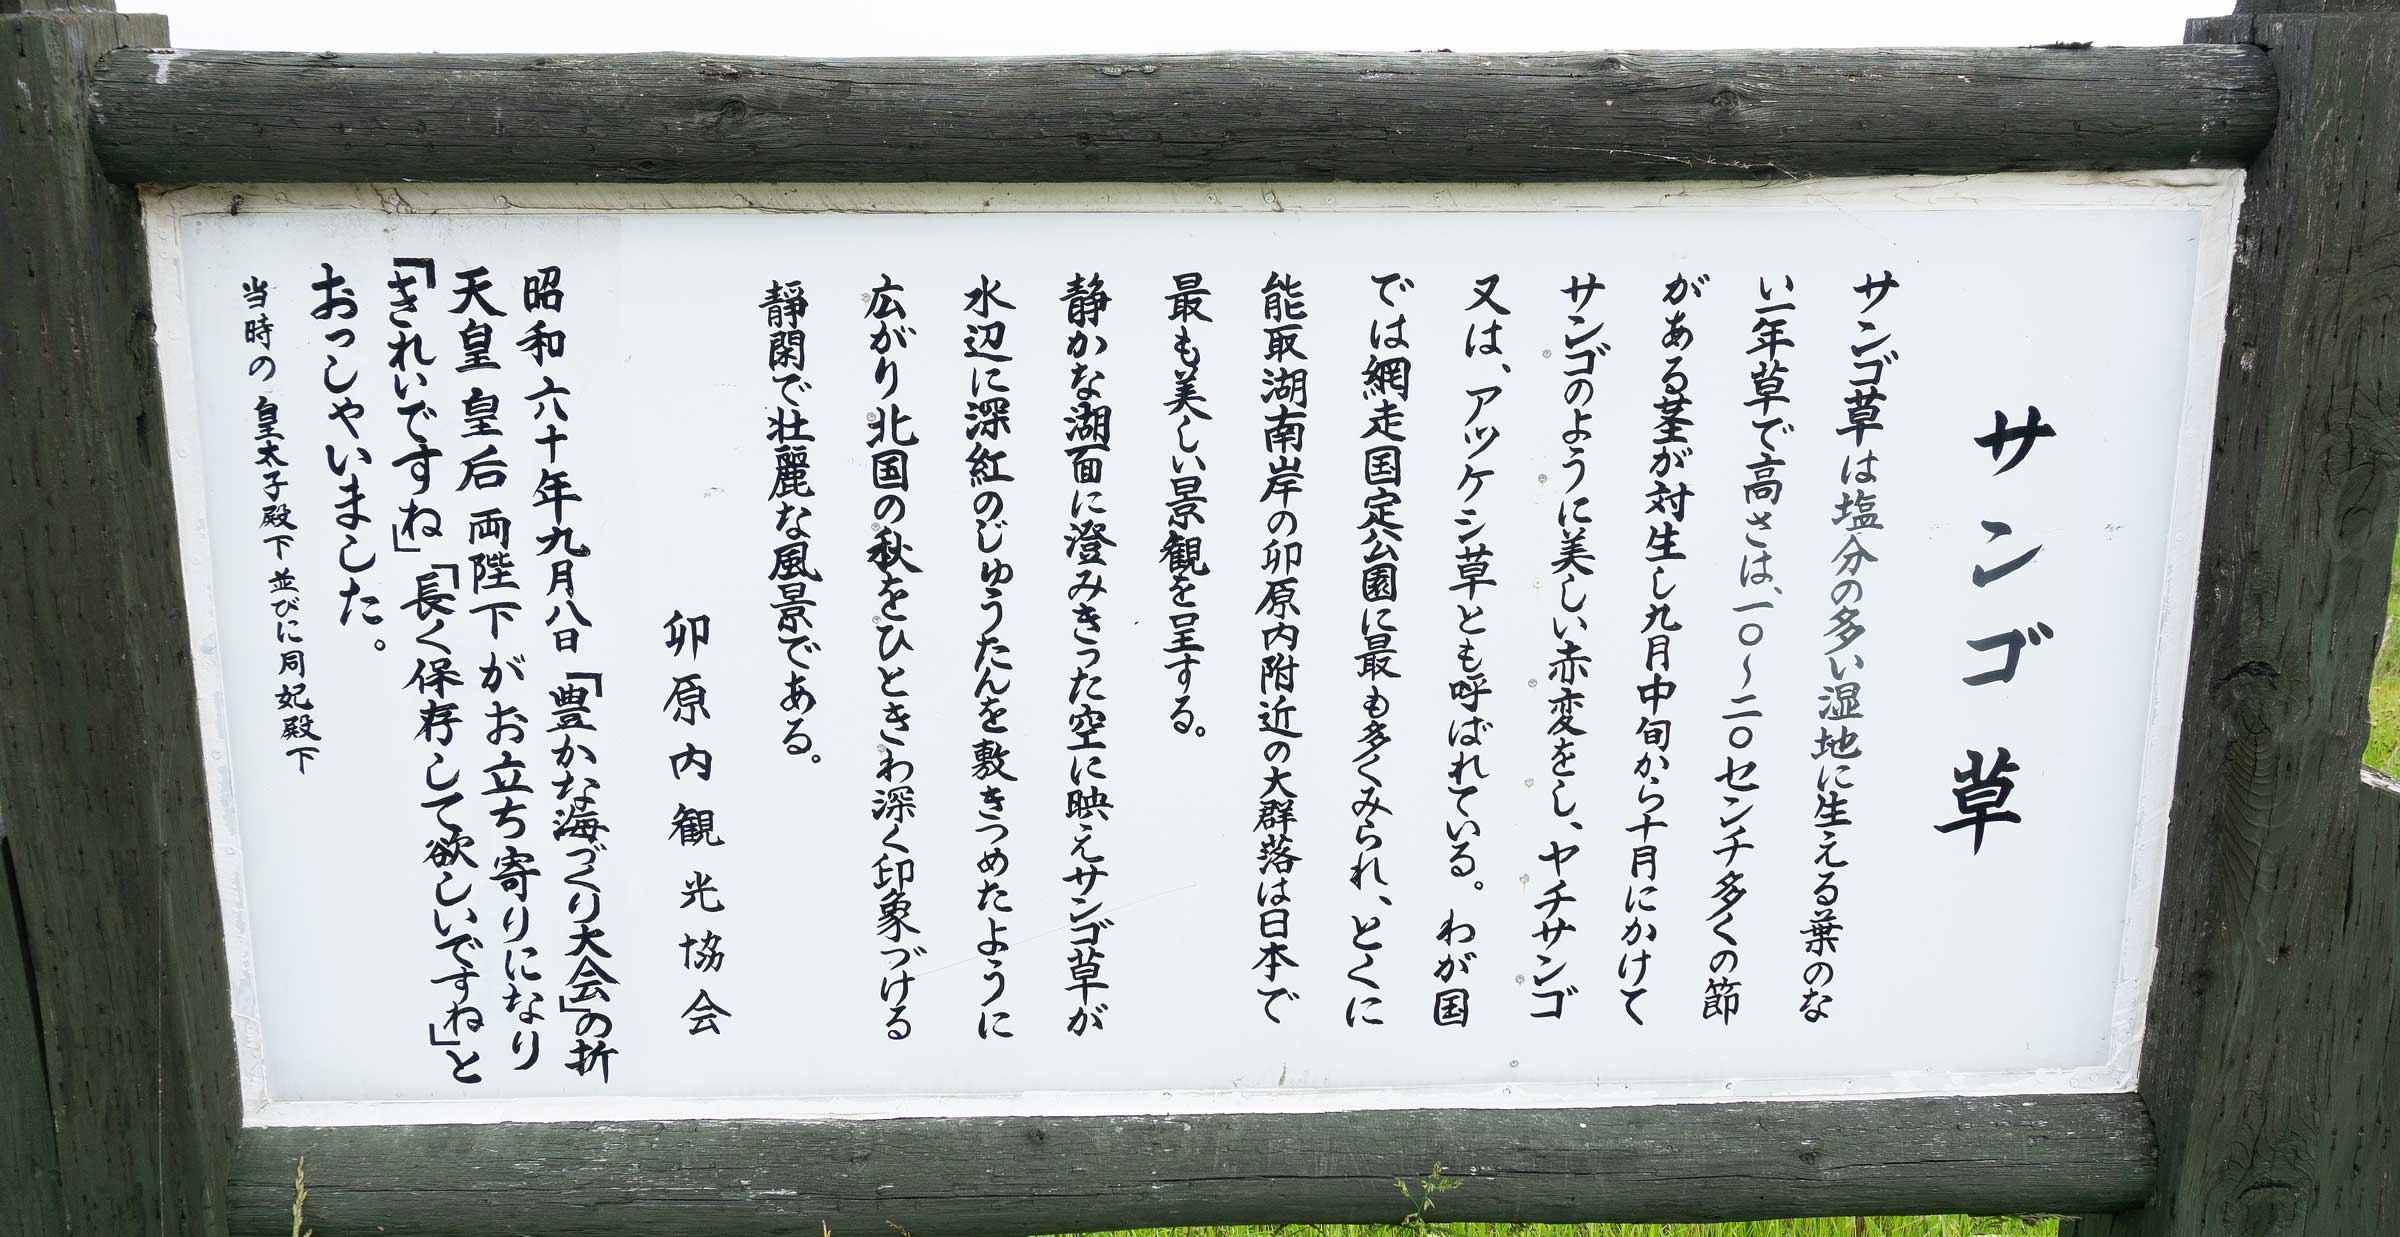 サンゴ草
サンゴ草は塩分の多い湿地に生える葉のな
い一年草で高さは、一〇〜二〇センチ多くの節
がある茎が対生し九月中旬から十月にかけて
サンゴのように美しい赤変をし、ヤチサンゴ
又は、アツケシ草とも呼ばれている。わが国
では網走国定公園に最も多くみられ、とくに
能取湖南岸の卯原内附近の大群落は日本で
最も美しい景観を呈する。
静かな湖面に澄みきった空に映えサンゴ草が
水辺に深紅のじゅうたんを敷きつめたように
広がり北国の秋をひときわ深く印象づける
靜閑で壮麗な風景である。
卯原内観光協会
昭和六十年九月八日「豊かな海づくり大会」の折
天皇皇后両陛下がお立ち寄りになり
「きれいですね」「長く保存して欲しいですね」と
おっしゃいました。
当時の皇太子殿下並びに同妃殿下